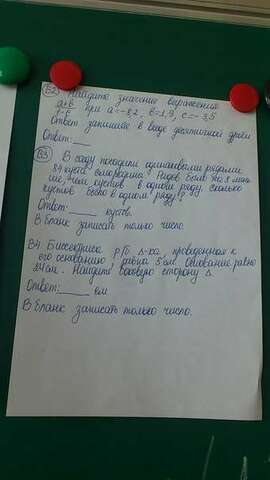 В2) Найдите значение выражения
a+b при a=-8,2, b=1,9, c=-3,5
Ответ запишите в виде десятичной дроби
Ответ: __
В3 В саду посадили одинаковыми рядами
84 куста смородины. Рядов было на 8 мень
ше, чем кустов в одном ряду. Сколько
кустов было в одном ряду?
Ответ: ____ кустов.
В бланк записать только число
В4 Биссектриса р/б Δ-ка, проведенная к
его основанию, равна 5 см. Основание равно
24 см. Найдите боковую сторону Δ.
Ответ: ____ см
В бланк записать только число.